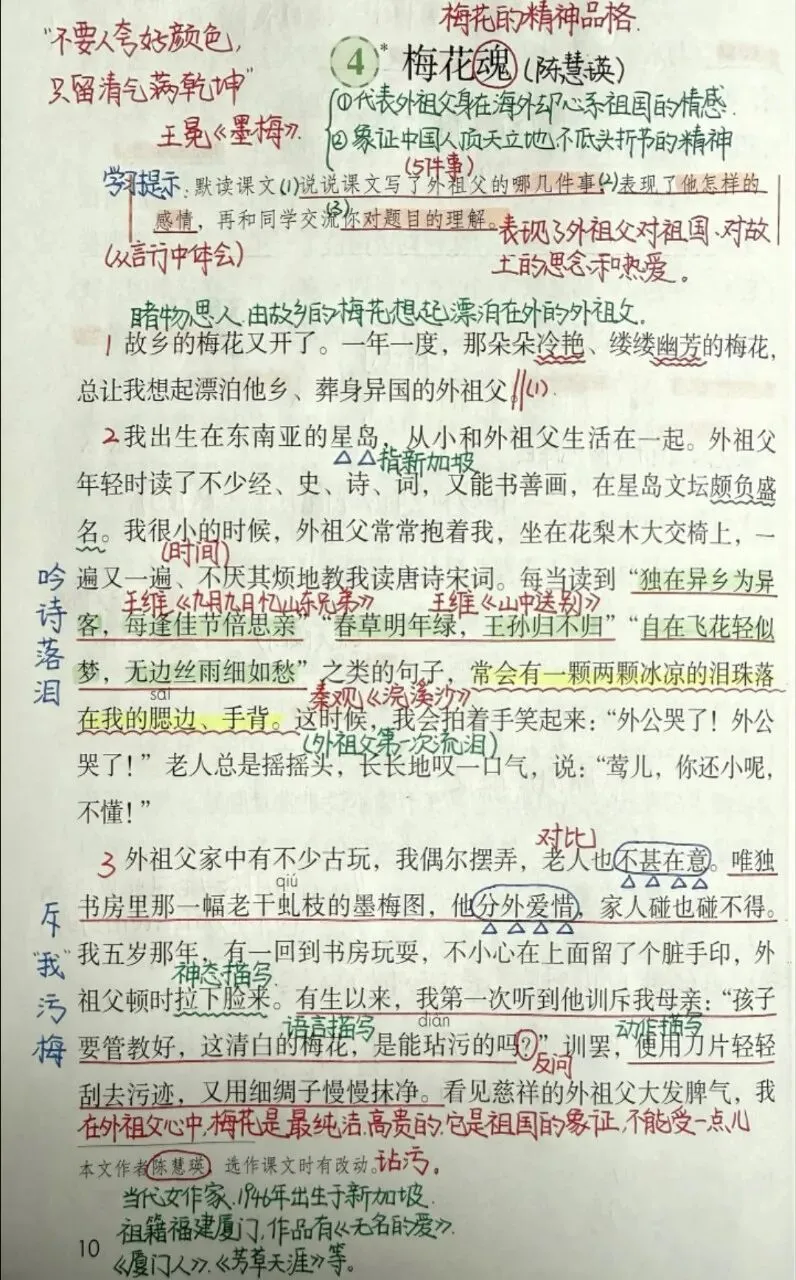 梅花的精神品格.
"不要人夸好颜色,
只留清气满乾坤"
王冕《墨梅》.
4* 梅花魂(陈慧瑛)
①代表外祖父身在海外却心系祖国的情感.
②象征中国人顶天立地、不低头折节的精神
(5件事)
学习提示:默读课文(1)说说课文写了外祖父的哪几件事(2)表现了他怎样的
感情,再和同学交流(3)你对题目的理解。
(从言行中体会)
表现了外祖父对祖国、对故
土的思念和热爱。
睹物思人,由故乡的梅花想起漂泊在外的外祖父.
1 故乡的梅花又开了。一年一度,那朵朵冷艳、缕缕幽芳的梅花,
总让我想起漂泊他乡、葬身异国的外祖父。(1)
2 我出生在东南亚的星岛,从小和外祖父生活在一起。外祖父
指新加坡
年轻时读了不少经、史、诗、词,又能书善画,在星岛文坛颇负盛
名。我很小的时候,外祖父常常抱着我,坐在花梨木大交椅上,一
(时间)
遍又一遍、不厌其烦地教我读唐诗宋词。每当读到“独在异乡为异
王维《九月九日忆山东兄弟》 王维《山中送别》
客,每逢佳节倍思亲”“春草明年绿,王孙归不归”“自在飞花轻似
梦,无边丝雨细如愁”之类的句子,常会有一颗两颗冰凉的泪珠落
sāi
秦观《浣溪沙》
在我的腮边、手背。这时候,我会拍着手笑起来:“外公哭了!外公
(外祖父第一次流泪)
哭了!”老人总是摇摇头,长长地叹一口气,说:“莺儿,你还小呢,
不懂!”
吟诗落泪
对比
3 外祖父家中有不少古玩,我偶尔摆弄,老人也不甚在意。唯独
qiú
书房里那一幅老干虬枝的墨梅图,他分外爱惜,家人碰也碰不得。
我五岁那年,有一回到书房玩耍,不小心在上面留了个脏手印,外
神态描写
祖父顿时拉下脸来。有生以来,我第一次听到他训斥我母亲:“孩子
语言描写 diàn 动作描写
要管教好,这清白的梅花,是能玷污的吗?”训罢,便用刀片轻轻
反问
刮去污迹,又用细绸子慢慢抹净。看见慈祥的外祖父大发脾气,我
斥"我"污梅
在外祖父心中,梅花是最纯洁、高贵的,它是祖国的象征,不能受一点儿
玷污。
本文作者陈慧瑛,选作课文时有改动。
当代女作家,1946年出生于新加坡.
祖籍福建厦门,作品有《无名的爱》.
《厦门人》.《芳草天涯》等。
10